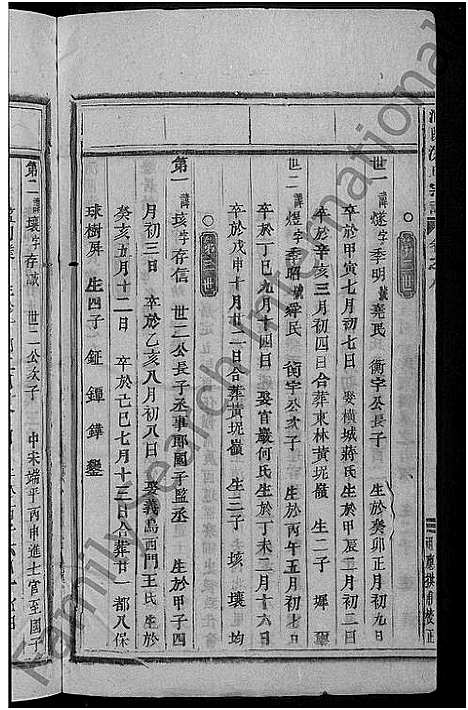 第二世
世一 諱煫字季明號堯民 衡宇公長子 生於癸卯正月初九日
卒於甲寅七月初七日 娶橫城蔣氏生於甲辰二月初二日
卒於辛亥三月初四日合葬東林黃坭嶺 生二子 墀
世二 諱煜字季昭號舜民 衡宇公次子 生於丙午五月初
卒於丁巳九月十四日 娶官巖何氏生於丁未二月十六日
卒於戊申十月廿二日合葬黃坭嶺 生三子 垓 壤 均
第三世
第一 諱垓字存信 世二公長子丞事郎國子監丞 生於甲子四
月初三日 卒於乙亥八月初八日 娶義烏西門王氏生於
癸亥五月十二日 卒於己巳七月十三日合葬廿一都八保
球樹屏 生四子 鉦 鐔 鏵 鑾
第二 諱壤字存誠 世二公次子 中宋端平丙申進士官至國子
FamilySearch International